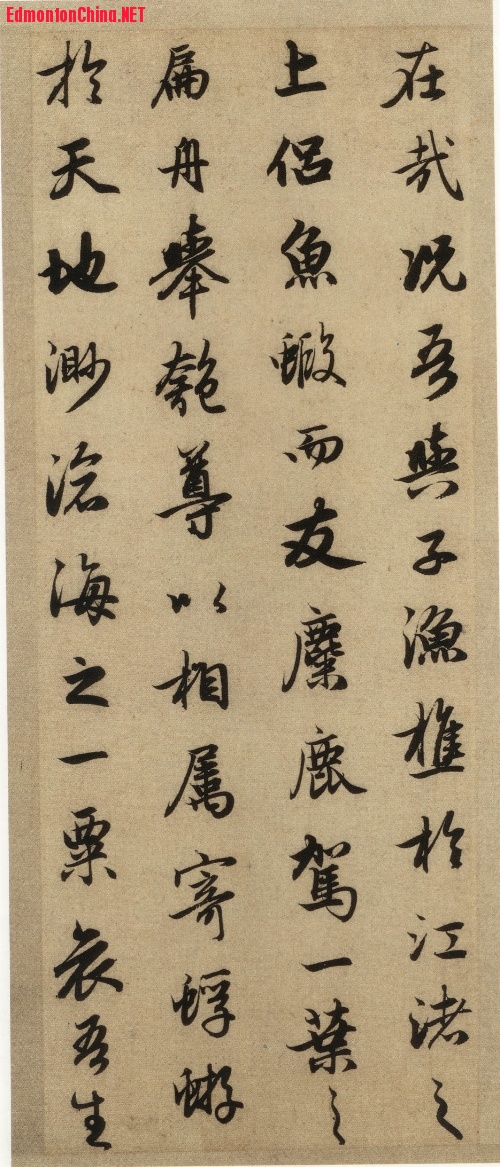 EdmontonChina.NET
在哉况吾與子漁樵於江渚之
上侶魚蝦而友麋鹿駕一葉之
扁舟舉匏尊以相屬寄蜉蝣
於天地渺滄海之一粟哀吾生